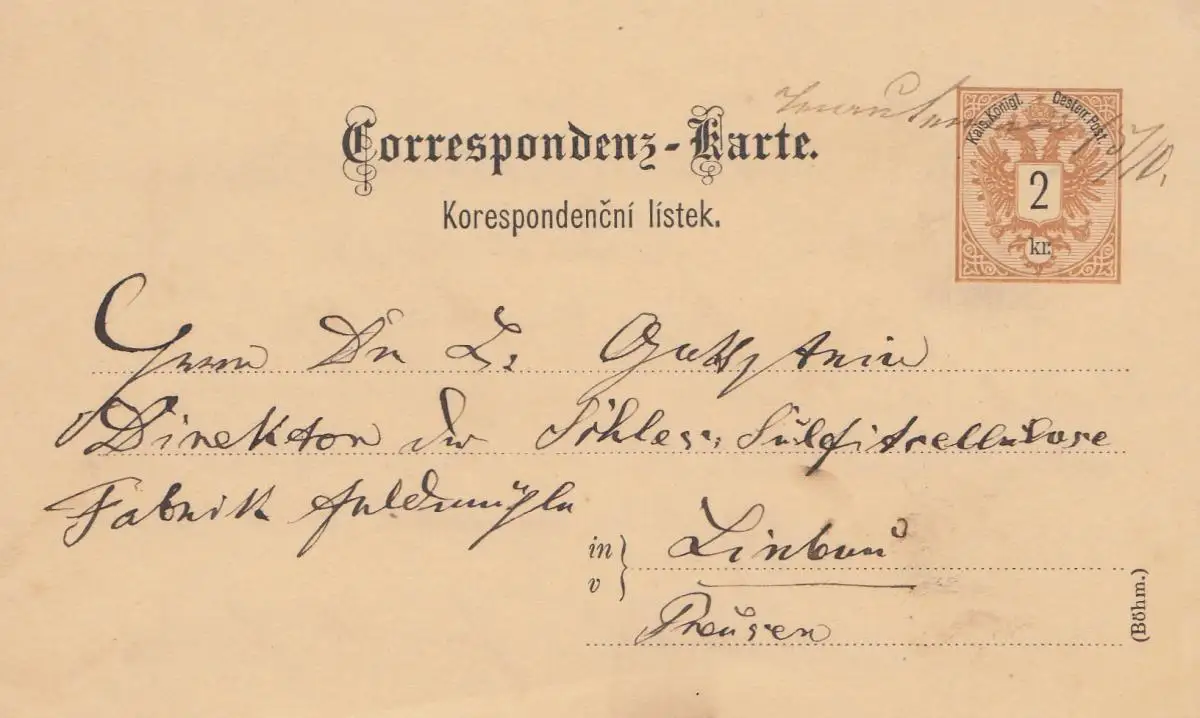 Correspondenz-Karte.
Korespondenční lístek.
Kais. Königl. Oesterr. Post.
2
kr.
15/10.
Herrn Dr L. Gottstein
Direktor der Schles. Sulfitcellulose
Fabrik Feldmühle
in
v
Liebau
Preusen
(Böhm.)